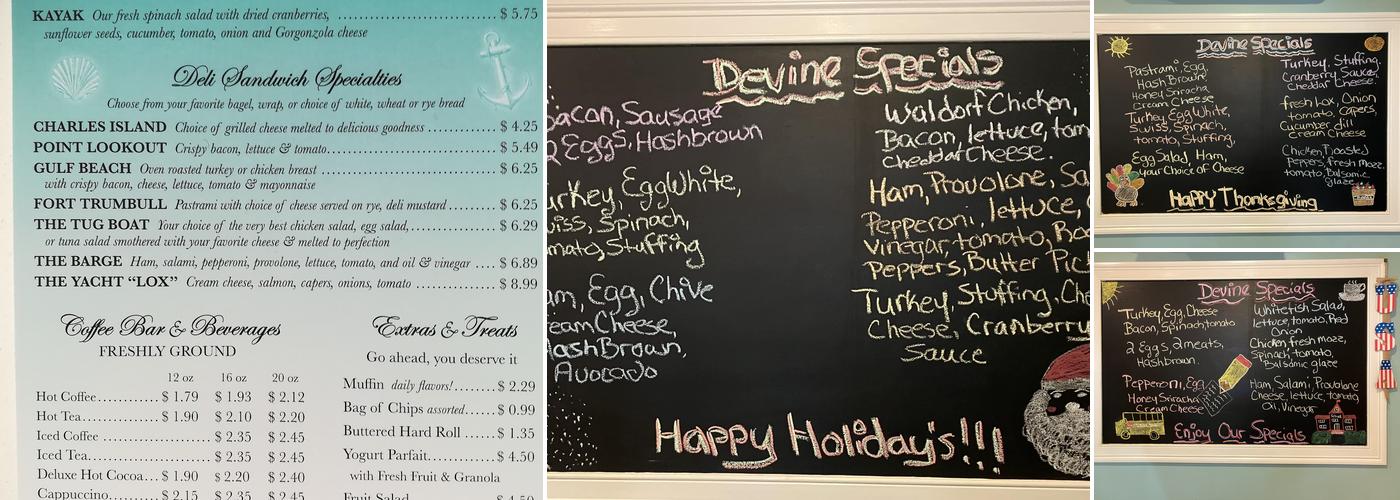 KAYAK Our fresh spinach salad with dried cranberries, .......... $ 5.75
sunflower seeds, cucumber, tomato, onion and Gorgonzola cheese
Deli Sandwich Specialties
Choose from your favorite bagel, wrap, or choice of white, wheat or rye bread
CHARLES ISLAND Choice of grilled cheese melted to delicious goodness .......... $ 4.25
POINT LOOKOUT Crispy bacon, lettuce & tomato.......... $ 5.49
GULF BEACH Oven roasted turkey or chicken breast .......... $ 6.25
with crispy bacon, cheese, lettuce, tomato & mayonnaise
FORT TRUMBULL Pastrami with choice of cheese served on rye, deli mustard .......... $ 6.25
THE TUG BOAT Your choice of the very best chicken salad, egg salad, .......... $ 6.29
or tuna salad smothered with your favorite cheese & melted to perfection
THE BARGE Ham, salami, pepperoni, provolone, lettuce, tomato, and oil & vinegar .... $ 6.89
THE YACHT “LOX” Cream cheese, salmon, capers, onions, tomato .......... $ 8.99
Coffee Bar & Beverages
FRESHLY GROUND
12 oz 16 oz 20 oz
Hot Coffee.......... $ 1.79 $ 1.93 $ 2.12
Hot Tea.......... $ 1.90 $ 2.10 $ 2.20
Iced Coffee .......... $ 2.35 $ 2.45
Iced Tea.......... $ 2.35 $ 2.45
Deluxe Hot Cocoa... $ 1.90 $ 2.20 $ 2.40
Cappuccino.......... $ 2.15 $ 2.35 $ 2.45
Extras & Treats
Go ahead, you deserve it
Muffin daily flavors!.......... $ 2.29
Bag of Chips assorted...... $ 0.99
Buttered Hard Roll ....... $ 1.35
Yogurt Parfait.......... $ 4.50
with Fresh Fruit & Granola
Fruit Salad .......... $ 4.50
Devine Specials
Bacon, Sausage
2 Eggs, Hashbrown
urkey, EggWhite,
wiss, Spinach,
mato, Stuffing
am, Egg, Chive
eamCheese,
HashBrown,
Avocado
Waldorf Chicken,
Bacon, lettuce, tom
cheddar Cheese.
Ham, Provolone, Sa
Pepperoni, lettuce,
vinegar, tomato, Ba
Peppers, Butter Pic
Turkey, Stuffing, Che
Cheese, Cranberry
Sauce
Happy Holiday's!!!
Devine Specials
Pastrami, Egg,
Hash Brown,
Honey Sriracha
Cream Cheese
Turkey, Egg White,
Swiss, Spinach,
tomato, Stuffing,
Egg Salad, Ham,
your Choice of Cheese
Turkey, Stuffing,
Cranberry Sauce,
Cheddar Cheese.
fresh lox, Onion
tomato, Capers,
Cucumber dill
cream Cheese
Chicken, Roasted
Peppers, fresh mozz,
tomato, Balsamic
glaze
Happy Thanksgiving
Devine Specials
Turkey, Egg, Cheese
Bacon, Spinach, tomato
2 Eggs, 2 meats,
Hashbrown.
Pepperoni, Egg
Honey Sriracha
Cream Cheese
Whitefish Salad,
lettuce, tomato, Red
Onion
Chicken, fresh mozz,
Spinach, tomato,
Balsamic glaze
Ham, Salami, Provolone
Cheese, lettuce, tomato
Oil, Vinegar
Enjoy Our Specials